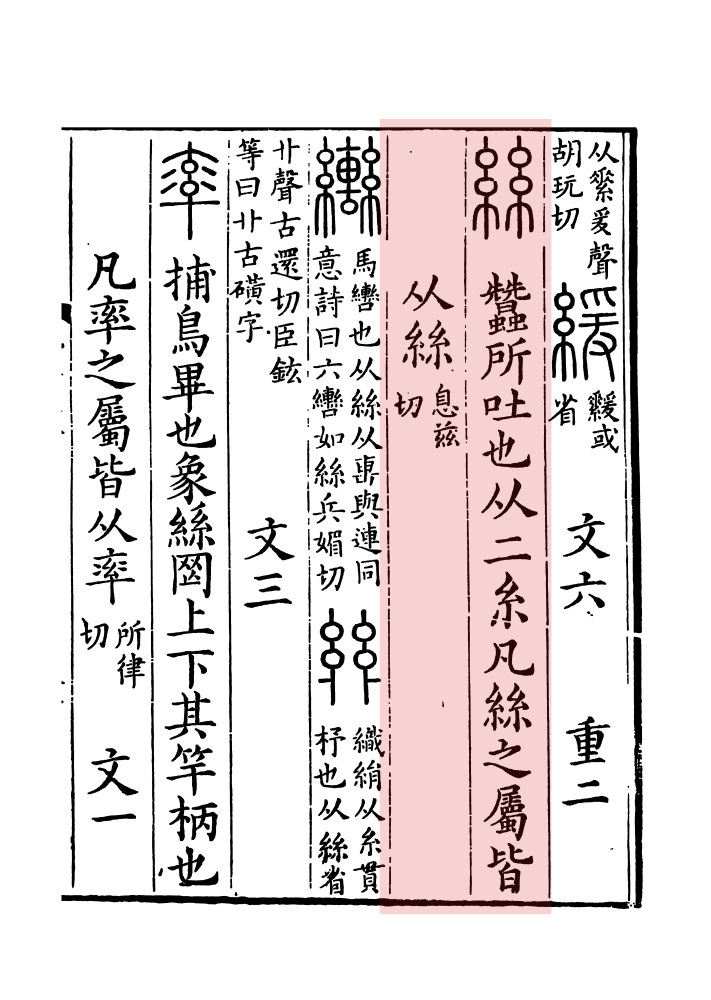 从素爰聲
胡玩切
緩
緩或
省
文六
重二
絲
蠶所吐也从二糸凡絲之屬皆
从絲
息兹
切
轡
馬轡也从絲从軎與連同
意詩曰六轡如絲兵媚切
𢇁
織絹从糸貫
杼也从絲省
丱聲古還切臣鉉
等曰丱古磺字
文三
率
捕鳥畢也象絲罔上下其竿柄也
凡率之屬皆从率
所律
切
文一